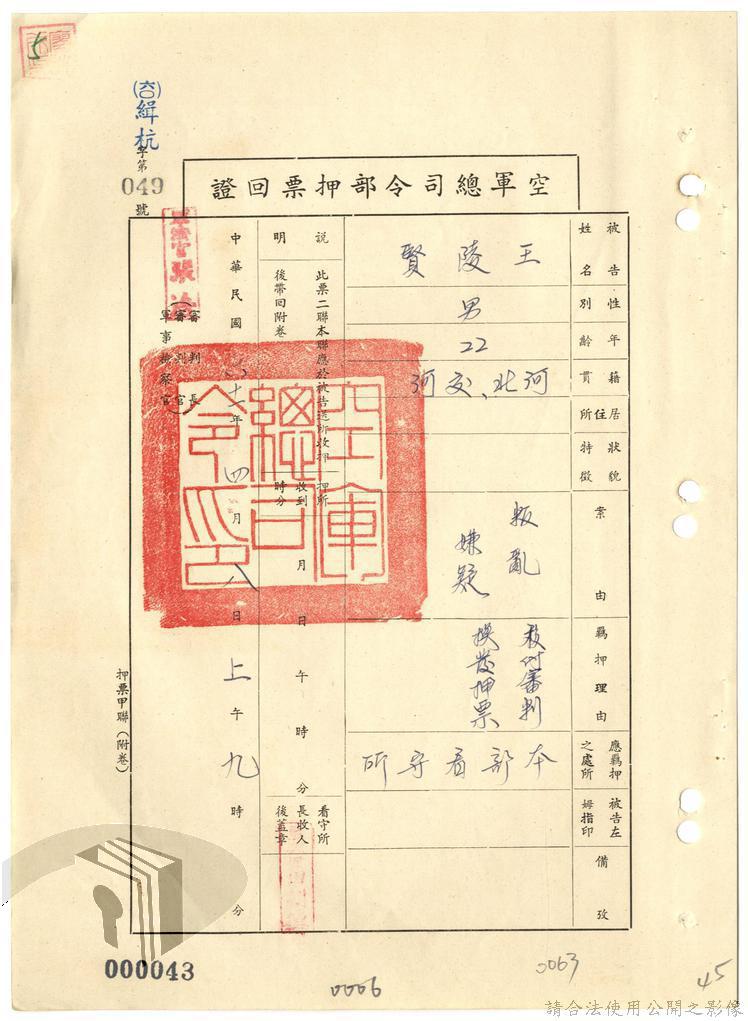 5
(六〇)緝杭
字第
049
號
空軍總司令部押票回證
被告姓名
王陵賢
性別
男
年齡
22
籍貫
河北、交河
居住所
狀貌特徵
案由
叛亂
嫌疑
羈押理由
交付審判
換發押票
應羈押之處所
本部看守所
被告左拇指印
備攷
說明
此票二聯本聯應於被告送所收押
後帶回附卷
押所收到時分
月
日
午
時
分
看守所長收人後蓋章
空軍總司令印
中華民國
六十一年
四月
八日
上午
九時
分
審判長
審判官
軍事檢察官
押票甲聯(附卷)
000043
0006
0063
45
請合法使用公開之影像